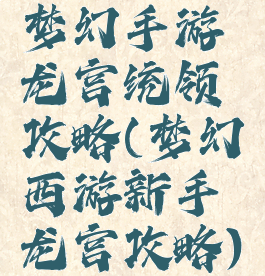 梦幻手游
龙宫统领
攻略(梦幻
西游新手
龙宫攻略)